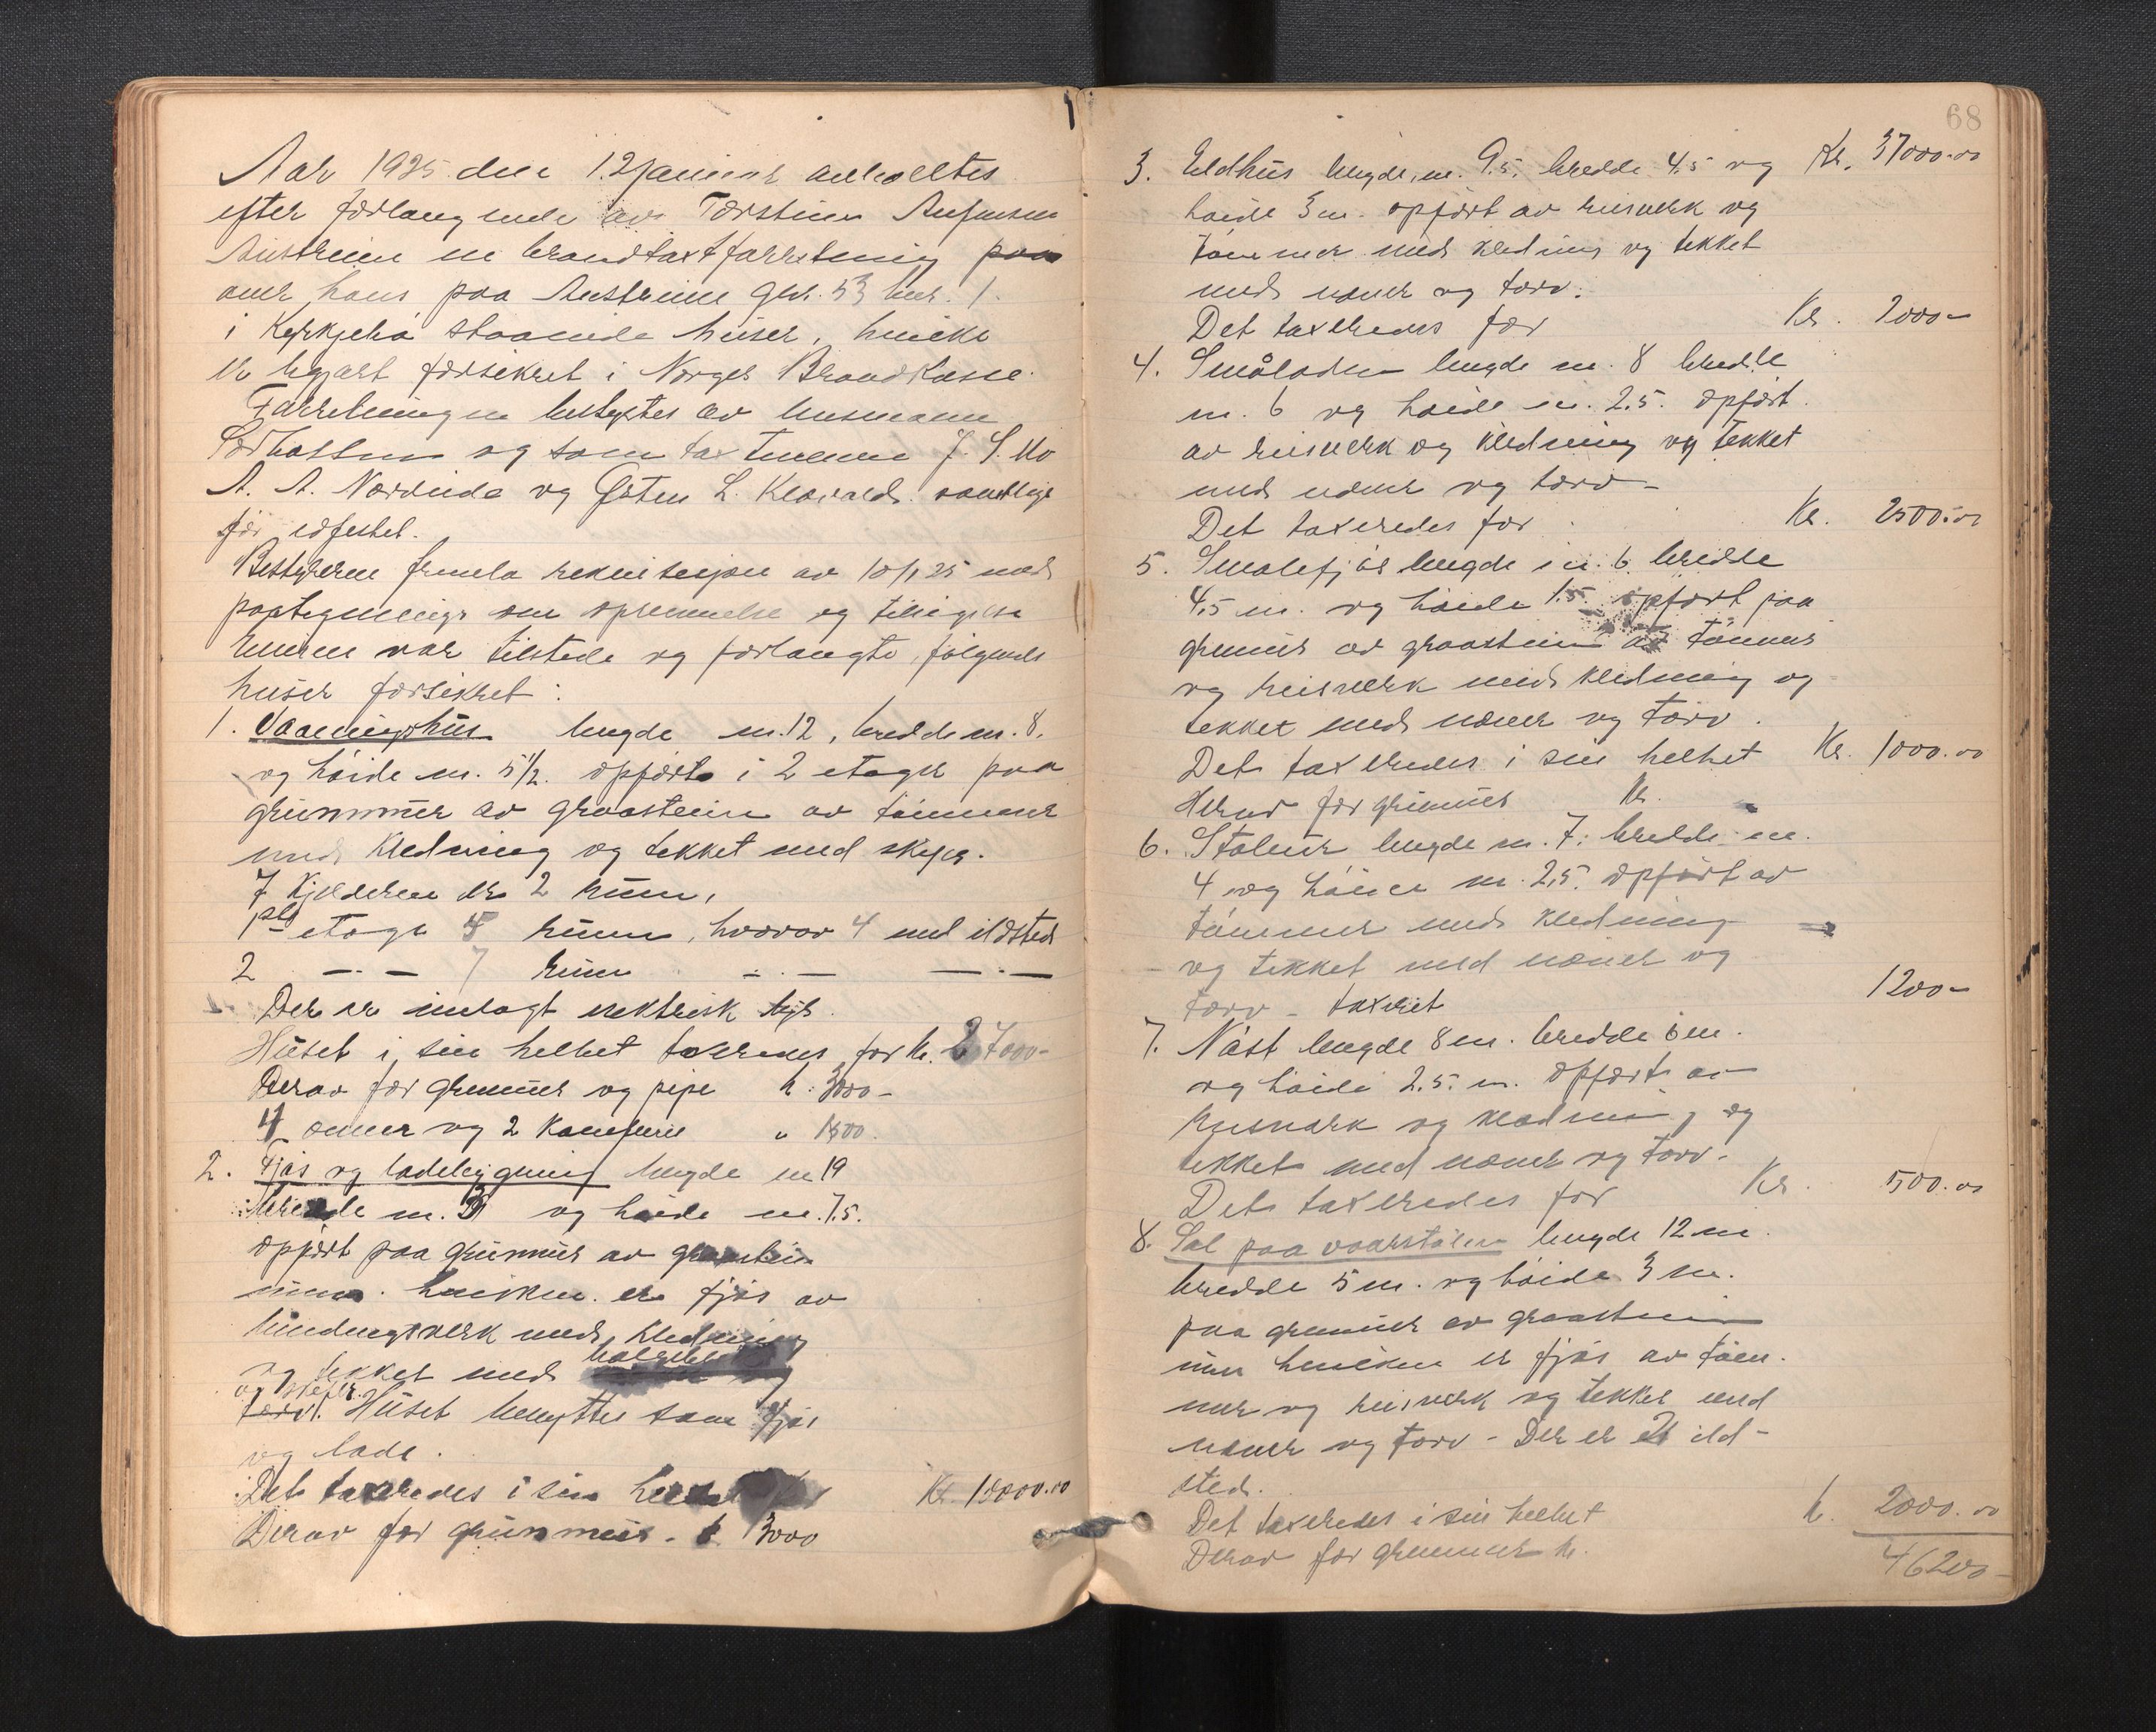 Aar 1925 den 12 januar avholltes
efter forlangende av Torstein Anfinsen
Austreim en brandtaxtforretning paa
over hans paa Austreim gnr. 53 bnr. 1.
i Kyrkjebø staaende huser, hvilke
er begjært forsikret i Norges Brandkasse.
Forretningen bestyrtes av lensmann
og som taxtmenn J. S. Mo
A. A. Nordeide og Østen L. samtlige
før edfestet.
Bestyreren fremla rekvisisjon av 10/1 25 med
paategninger om opnevnelse og tilsigelse
Eieren var tilstede og forlangte følgende
huser forsikret:
1. Vaaningshus lengde m. 12, bredde m. 8.
og høide m. 5 1/2. opført i 2 etager paa
grunnmur av graastein av tømmer
med kledning og tekket med skifer.
I kjelderen er 2 rum,
1ste etage 5 rum, hvorav 4 med ildsted
2 —.— 7 rum —.— —.—
Der er innlagt elektrisk lys.
Huset i sin helhet taxeredes for kr. 27000-
Derav for grunmur og pipe kr. 3000-
4 ovner og 2 kaminer " 1500.
2. Fjøs og ladebygning lengde m 19
bredde m. og høide m. 7.5.
opført paa grunmur av graastein
innen hvilken er fjøs av
bindingsverk med kledning
og tekket med
og skifer
torv. Huset benyttes som fjøs
og lade.
Det taxeredes i sin helhet Kr. 10000.00
Derav for grunmur. kr 3000
68
3. Eldhus lengde m. 9.5. bredde 4.5 og Kr. 37000.00
høide 3 m. opført av reisverk og
tømmer med kledning og tekket
med never og torv.
Det taxeredes for Kr. 2000-
4. Småladen lengde m. 8 bredde
m. 6 og høide m. 2.5. opført
av reisverk og kledning og tekket
med never og torv-
Det taxeredes for Kr. 2500.00
5. Smalefjøs lengde m. 6. bredde
4.5 m. og høide 1.5. opført paa
grunmur av graastein av tømmer
og reisverk med kledning og
tekket med never og torv.
Det taxeredes i sin helhet Kr. 1000.00
Herav for grunmur kr.
6. Stabur lengde m. 7. bredde m.
4 og høide m. 2,5. opført av
tømmer med kledning
og tekket med never og
torv - taxeret 1200-
7. Nøst lengde 8 m. bredde 6 m.
og høide 2.5. m. opført av
reisverk og kledning og
tekket med never og torv.
Det taxeredes for Kr. 500.00
8. Sel paa vaarstølen lengde 12 m.
bredde 5 m. og høide 3 m.
paa grunmur av graastein
innen hvilken er fjøs av tøm-
mer og reisverk og tekket med
never og torv - Der er ild-
sted.
Det taxeredes i sin helhet kr. 2000.00
Derav for grunmur kr. 46200-